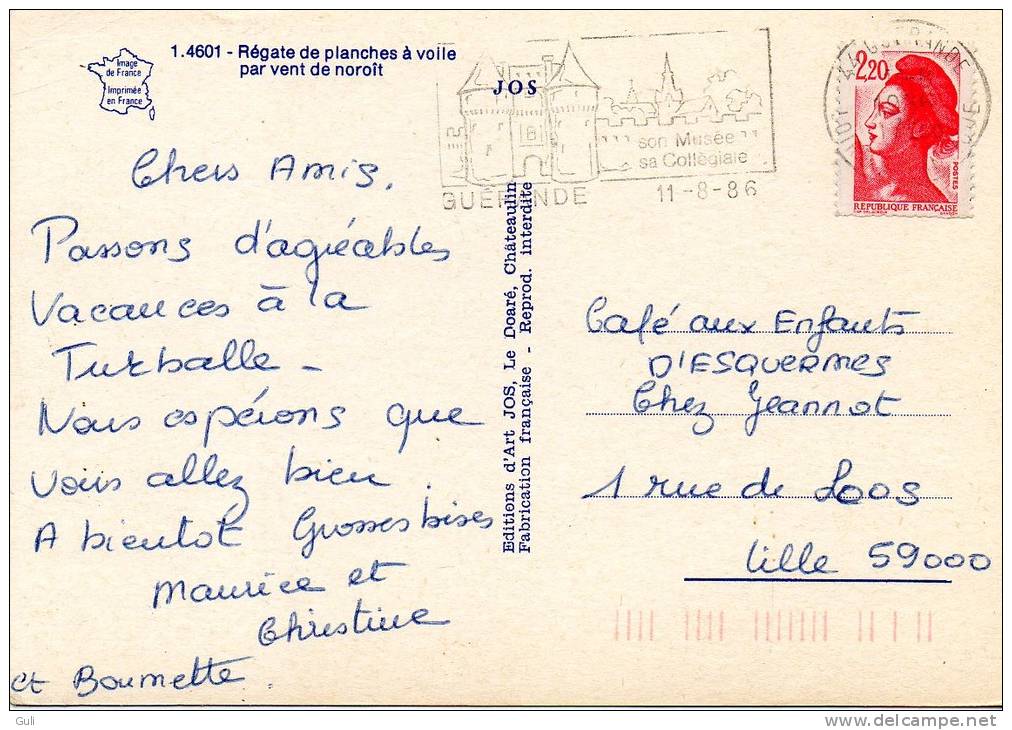 1.4601 - Régate de planches à voile
par vent de noroît
Image
de France
Imprimée
en France
JOS
son Musée
sa Collégiale
GUÉRANDE
11-8-86
44 GUERANDE
2,20
POSTES
RÉPUBLIQUE FRANÇAISE
Chers Amis,
Passons d'agréables
Vacances à la
Turballe -
Nous espérons que
vous allez bien.
A bientot Grosses bises
Maurice et
Christine
et Boumette.
Editions d'Art JOS, Le Doaré, Châteaulin
Fabrication française - Reprod. interdite
Café aux Enfants
D'ESQUERMES
Chez Jeannot
1 rue de Loos
Lille 59000
Guli
delcampe.net